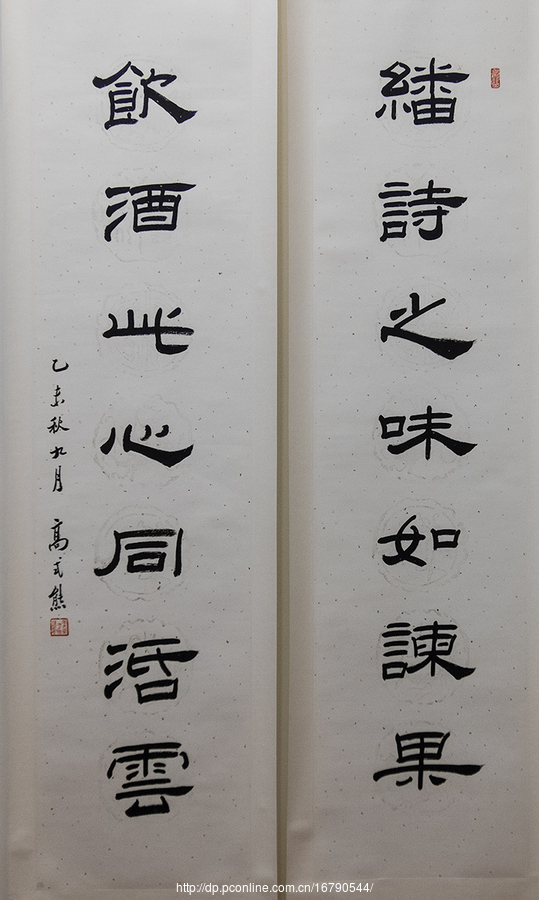 繙詩之味如諫果
飲酒此心同活雲
乙未秋九月 高式熊
http://dp.pconline.com.cn/16790544/